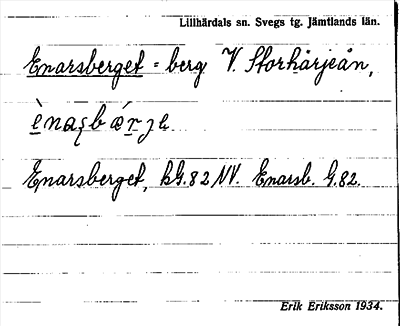 Lillhärdals sn. Svegs tg. Jämtlands län.
Enarsberget = berg V. Storhärjeån,
Enarsberget, kG.82 NV. Enarsb. G.82.
Erik Eriksson 1934.